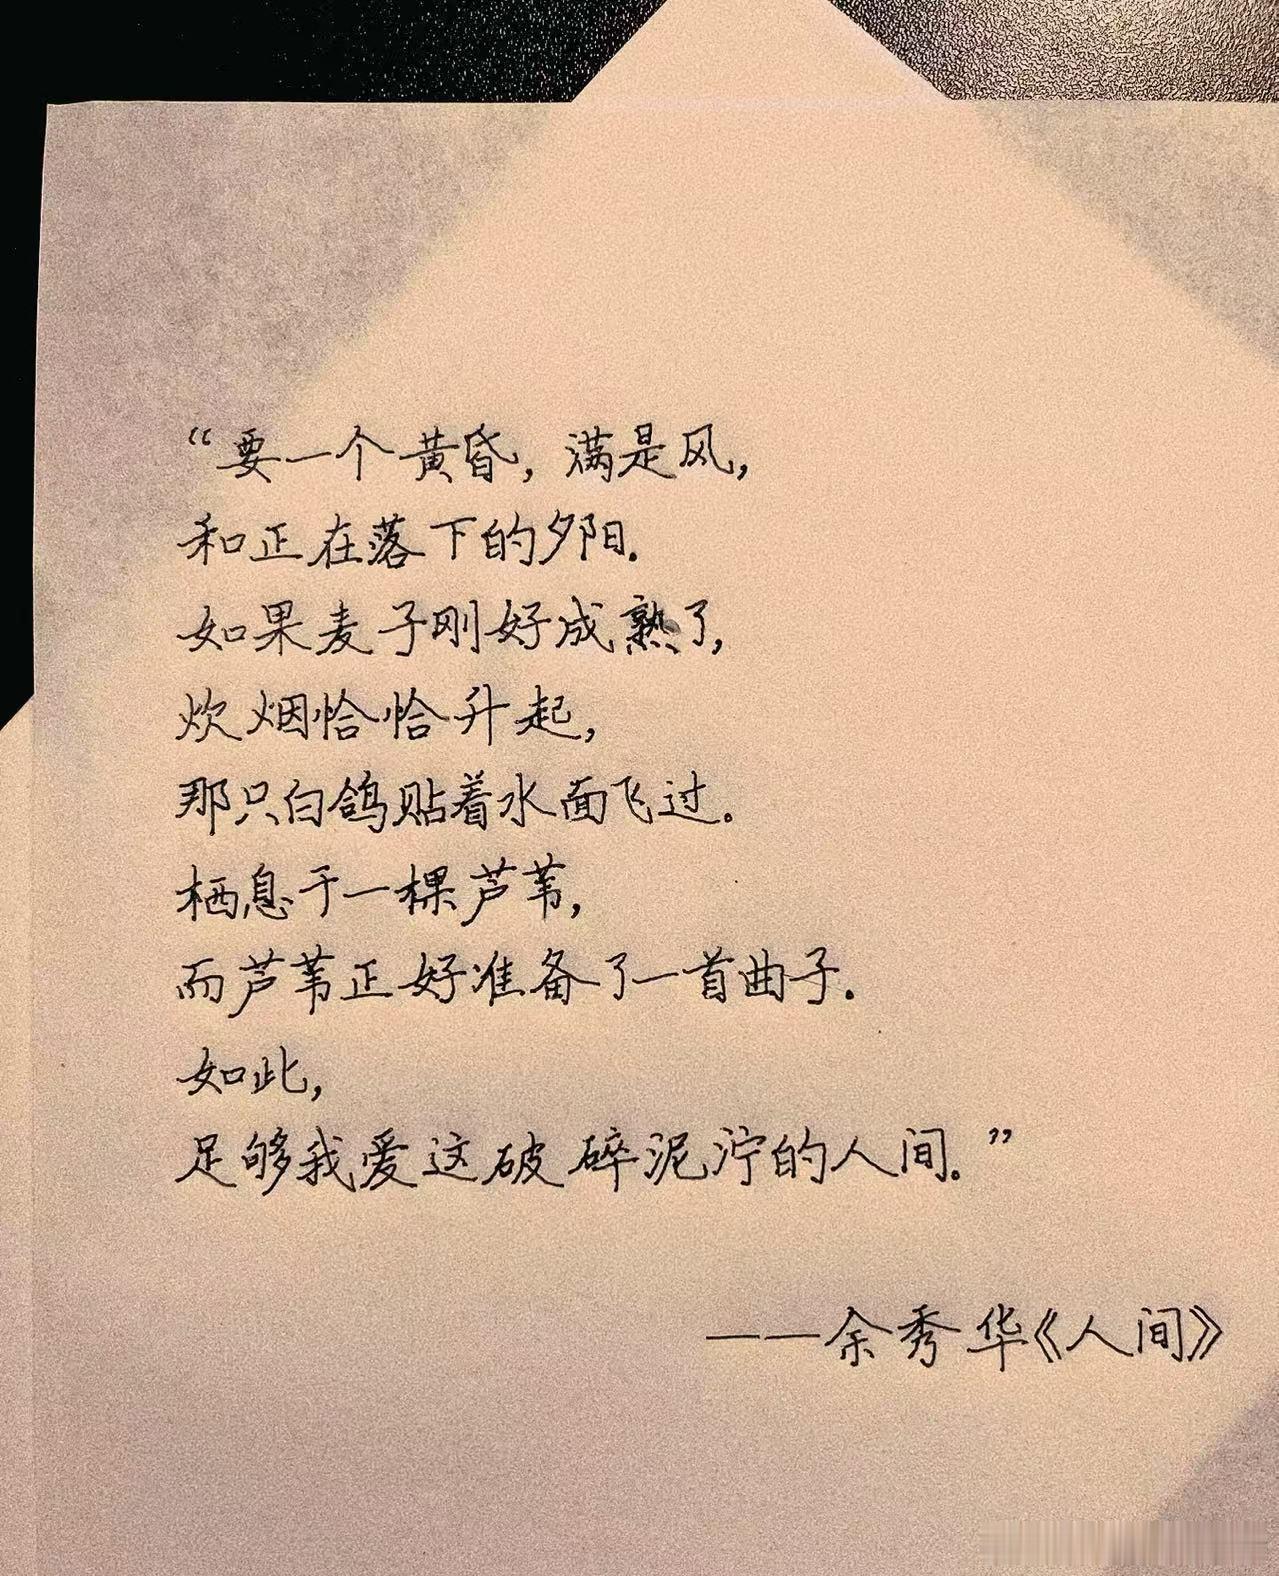 “要一个黄昏，满是风，
和正在落下的夕阳.
如果麦子刚好成熟了，
炊烟恰恰升起，
那只白鸽贴着水面飞过。
栖息于一棵芦苇，
而芦苇正好准备了一首曲子.
如此，
足够我爱这破碎泥泞的人间.”
——余秀华《人间》